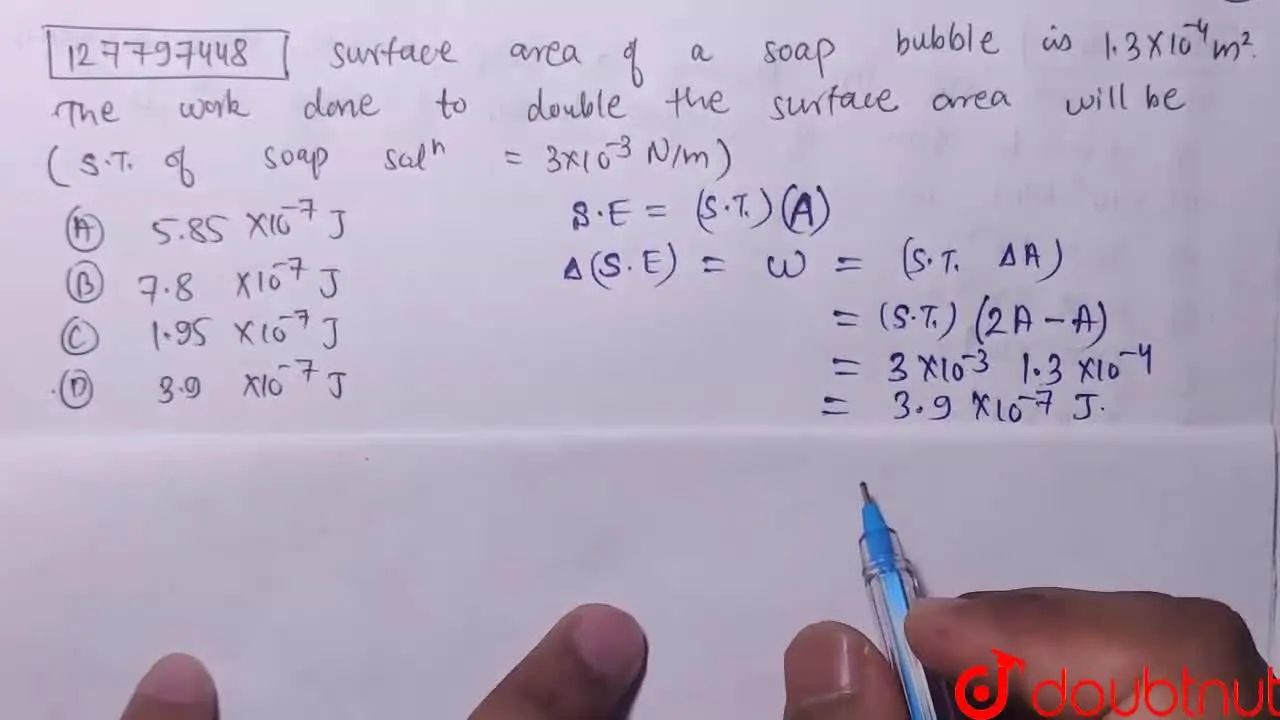 127797448 surface area of a soap bubble is 1.3×10⁻⁴ m².
The work done to double the surface area will be
(S.T. of soap solⁿ = 3×10⁻³ N/m)
(A) 5.85 ×10⁻⁷ J
(B) 7.8 ×10⁻⁷ J
(C) 1.95 ×10⁻⁷ J
.(D) 3.9 ×10⁻⁷ J
S.E = (S.T.)(A)
Δ(S.E) = W = (S.T. ΔA)
= (S.T.) (2A-A)
= 3×10⁻³ 1.3×10⁻⁴
= 3.9 ×10⁻⁷ J.
doubtnut